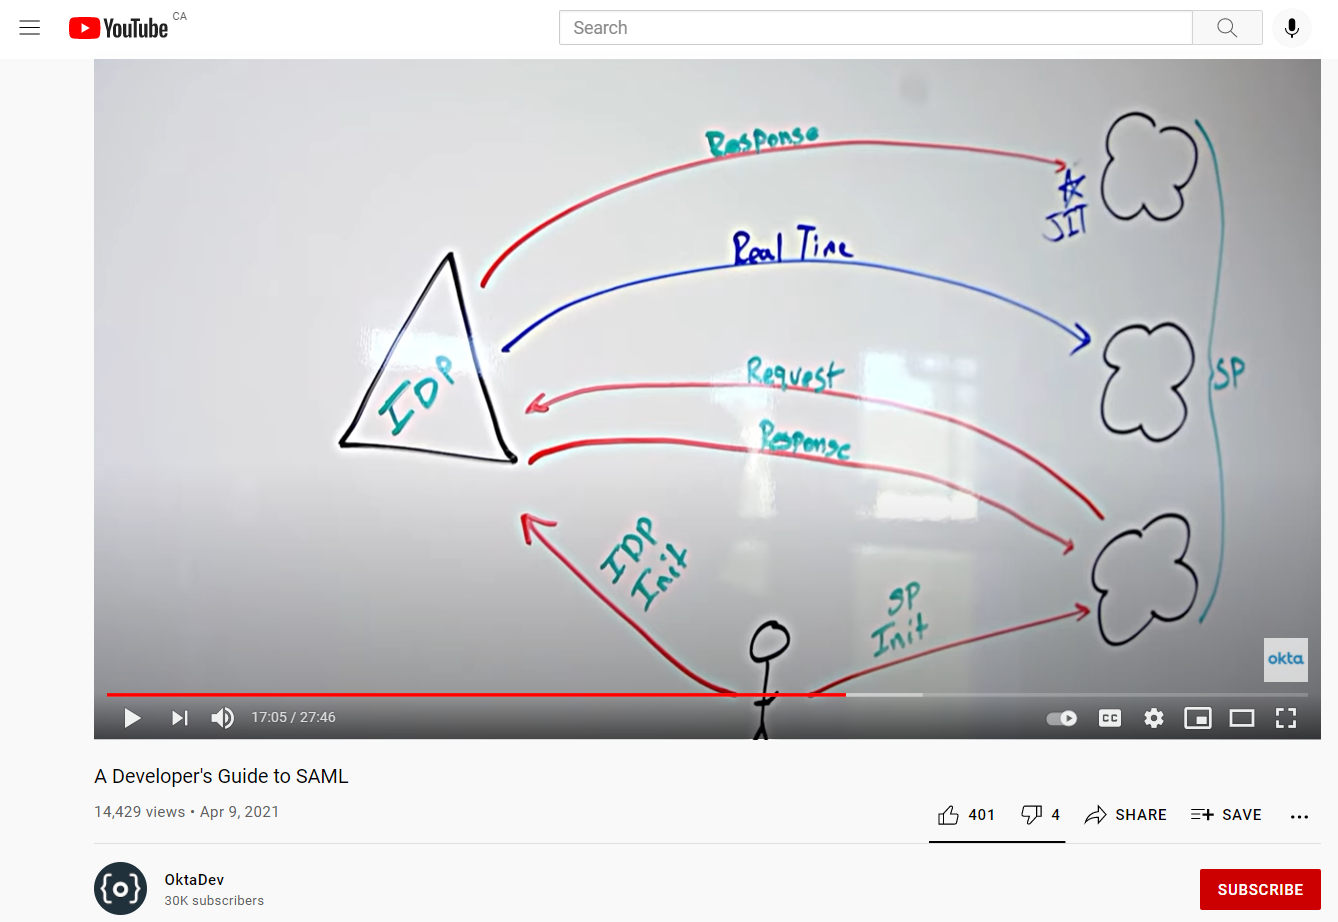 YouTube CA
Search
Response
JIT
Real Time
IDP
Request
SP
Response
IDP
Init
SP
Init
okta
17:05 / 27:46
CC
A Developer's Guide to SAML
14,429 views • Apr 9, 2021
401
4
SHARE
SAVE
OktaDev
30K subscribers
SUBSCRIBE